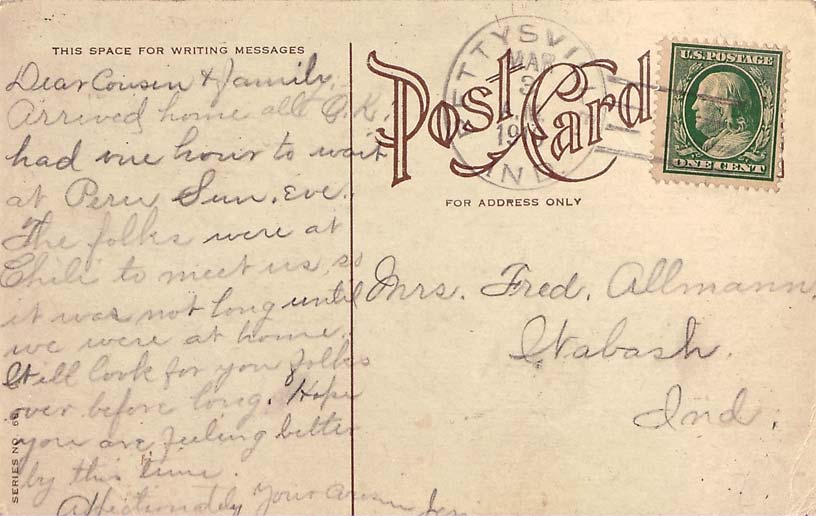 THIS SPACE FOR WRITING MESSAGES
Dear Cousin & family.
Arrived home all O.K.
had one hour to wait
at Peru Sun. Eve.
The folks were at
Chili to meet us, so
it was not long until
we were at home.
Will look for you folks
over before long. Hope
you are feeling better
by this time.
Affectionately Your Cousin
SERIES NO.
Post Card
ETTYSVI
MAR
3
IND.
U.S. POSTAGE
ONE CENT
FOR ADDRESS ONLY
Mrs. Fred. Allmann.
Wabash.
Ind.